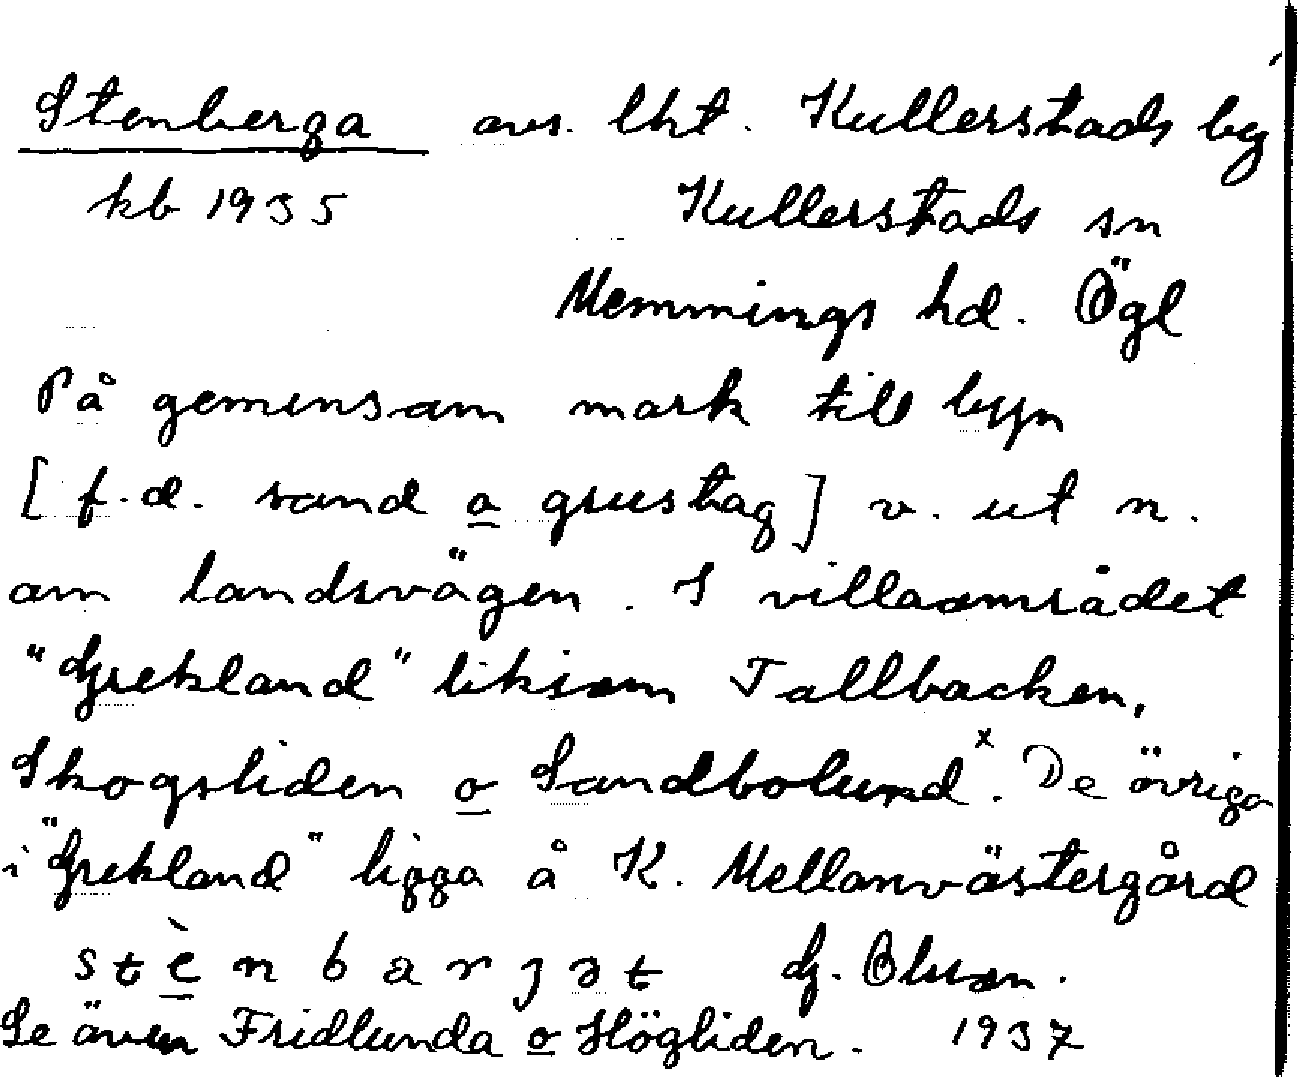 Stenberga avs. lht. Kullerstads by
kb 1935 Kullerstads sn
Memmings hd. Ögl
På gemensam mark till byn
[f.d. sand o grustag] v. ut n.
om landsvägen. I villaområdet
"Grekland" liksom Tallbacken,
Skogsliden o Sandbolund x. De övriga
i "Grekland" ligga å K. Mellanvästergård
stènbarjət G. Olson.
Se även Fridlunda o Högliden. 1937